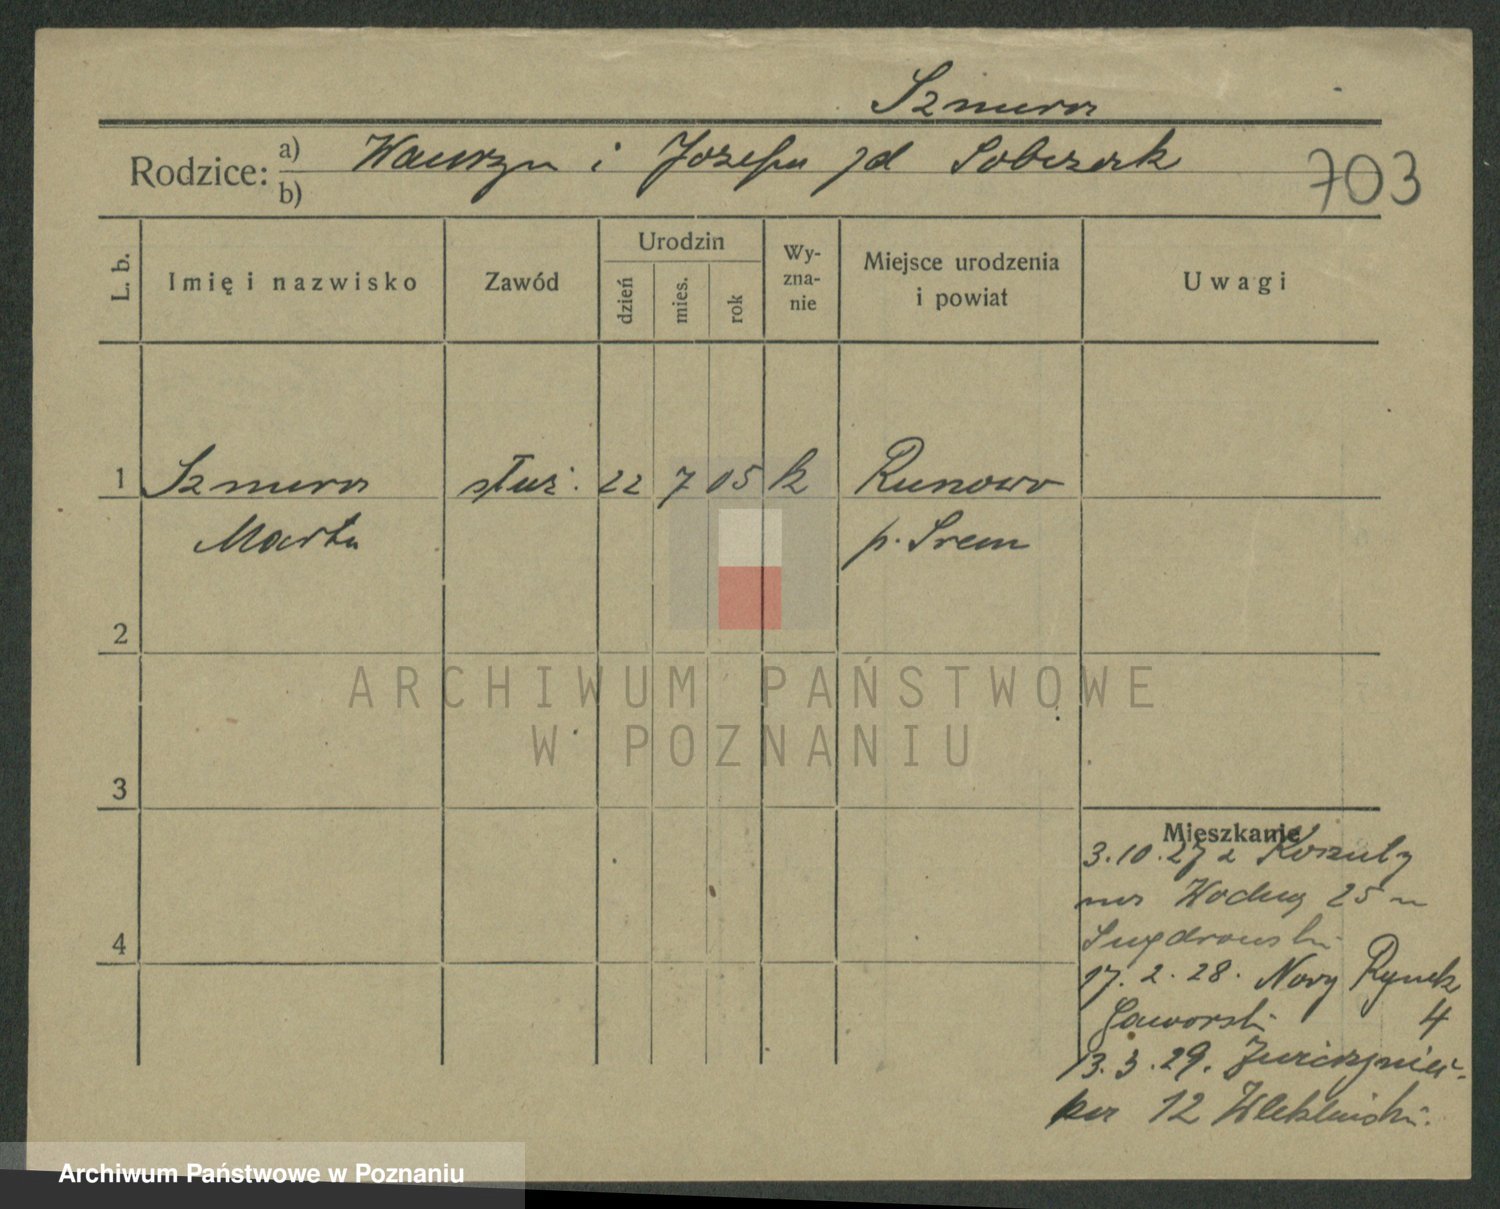 Szmura
Rodzice: a) Wawrzyn i Józefa zd Sobczak
b)
703
L. b.
Imię i nazwisko
Zawód
Urodzin
dzień
mies.
rok
Wy-
zna-
nie
Miejsce urodzenia
i powiat
Uwagi
1 Szmura służ. 22 7 05 k Runowo
Marta p. Srem
2
ARCHIWUM PAŃSTWOWE
W POZNANIU
3
Mieszkanie
3.10.27 z
Wodna 25
4
17. 2. 28. Nowy Rynek
Jaworski 4
13. 3. 29.
12
Archiwum Państwowe w Poznaniu